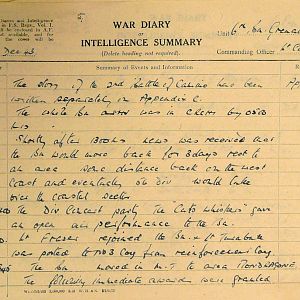 WAR DIARY
or
INTELLIGENCE SUMMARY
(Delete heading not required).
ligence and
in F.S. Regs., Vol. I.
be enclosed in A.F.
available, and for
the cover will be
Dec 43
Unit 6th Bn. Grenad
Commanding Officer Lt Col
Summary of Events and Information
The story of the 2nd Battle of Camino has been
written separately in Appendix C.
The whole Bn arrived in by 0500
hrs.
Shortly after 1300hrs news was received that
the Bn would move back for 3 days rest to
an area some distance back on the west
coast and eventually 56 Div would take
over the coastal sector.
The Div Concert party The Cats Whiskers gave
an open air performance to the Bn.
Lt Fraser rejoined the Bn.
was posted to No 3 Coy from reinforcement Coy
The Bn moved in M.T to area MONDRAGONE
The following immediate awards were granted